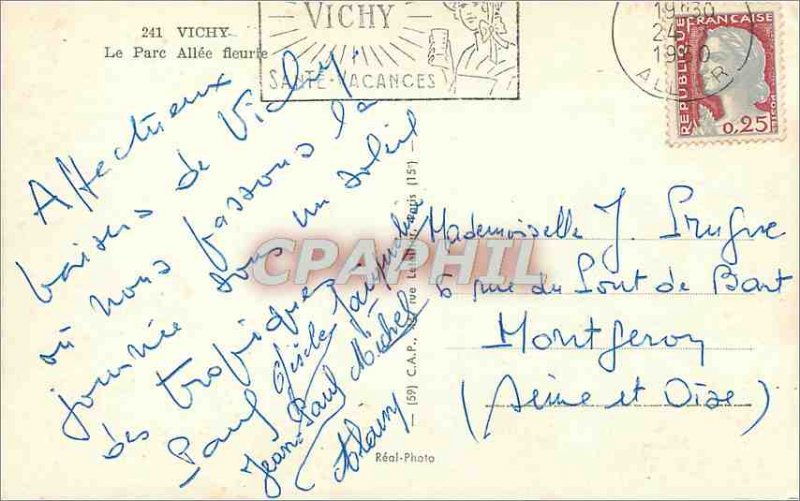 241 VICHY
Le Parc Allée fleurie
VICHY
SANTÉ-VACANCES
19 30
24
19 0
ALLIER
REPUBLIQUE FRANCAISE
POSTES
0,25
Affectueux
baisers de Vichy,
où nous passons la
journée sous un soleil
des tropiques
Paul Gisèle Jacqueline
Jean-Paul Michel
Alany
Mademoiselle J. Prugne
6 rue du Pont de Bart
Montgeron
(Seine et Oise)
(59) C.A.P., rue Paris (15e)
Réal-Photo
CPAPHIL